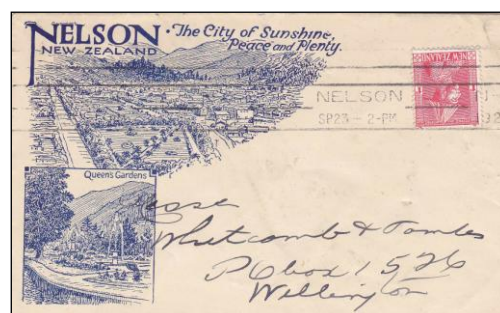 NELSON
NEW ZEALAND
The City of Sunshine,
Peace and Plenty.
NEW ZEALAND
NELSON
SP23 – 2-PM
Queen's Gardens
Whitcomb & Tombs
P O box 1526
Wellington